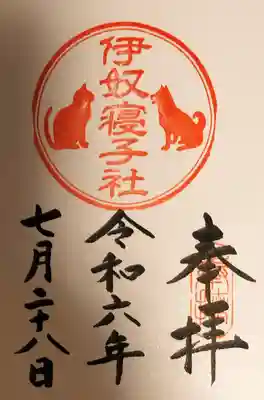 伊奴寝子社
奉拝
令和六年
七月二十八日